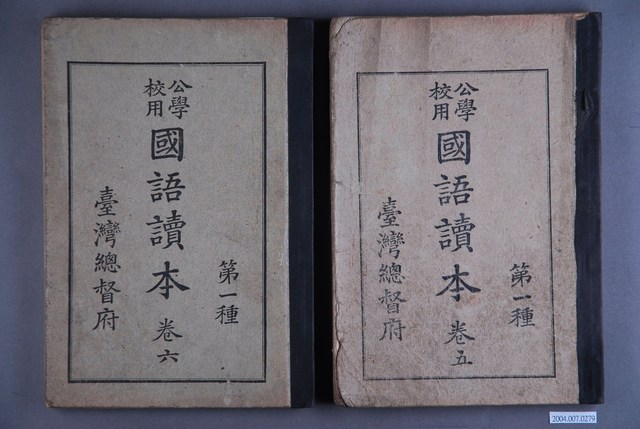 公學
校用
國語讀本
卷六
第一種
臺灣總督府
公學
校用
國語讀本
卷五
第一種
臺灣總督府
2004.007.0279